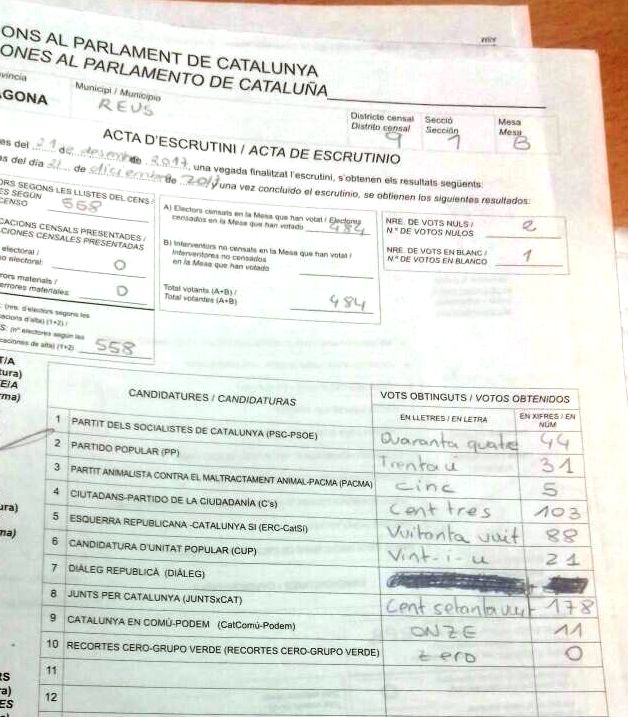 ONS AL PARLAMENT DE CATALUNYA
ONES AL PARLAMENTO DE CATALUÑA
vincia
AGONA
Municipi / Municipio
REUS
Districte censal
Distrito censal
9
Secció
Sección
1
Mesa
Mesa
B
ACTA D'ESCRUTINI / ACTA DE ESCRUTINIO
es del 21 de desembre de 2017, una vegada finalitzat l'escrutini, s'obtenen els resultats següents:
as del día 21 de diciembre de 2017 y una vez concluido el escrutinio, se obtienen los siguientes resultados:
ORS SEGONS LES LLISTES DEL CENS /
ES SEGÚN
CENSO
558
CACIONS CENSALS PRESENTADES /
CIONES CENSALES PRESENTADAS
electoral /
o electoral:
0
rors materials /
errores materiales:
0
: (nre. d'electors segons les
acions d'alta) (1+2) /
S: (nº electores según las
caciones de alta) (1+2)
558
A) Electors censats en la Mesa que han votat / Electores
censados en la Mesa que han votado
484
B) Interventors no censats en la Mesa que han votat /
Interventores no censados
en la Mesa que han votado
Total votants (A+B) /
Total votantes (A+B)
484
NRE. DE VOTS NULS /
N.º DE VOTOS NULOS
2
NRE. DE VOTS EN BLANC /
N.º DE VOTOS EN BLANCO
1
T/A
tura)
E/A
rma)
CANDIDATURES / CANDIDATURAS
VOTS OBTINGUTS / VOTOS OBTENIDOS
EN LLETRES / EN LETRA
EN XIFRES / EN
NÚM
1 PARTIT DELS SOCIALISTES DE CATALUNYA (PSC-PSOE) Quaranta quatre 44
2 PARTIDO POPULAR (PP) Trenta ú 31
3 PARTIT ANIMALISTA CONTRA EL MALTRACTAMENT ANIMAL-PACMA (PACMA) cinc 5
4 CIUTADANS-PARTIDO DE LA CIUDADANÍA (C's) Cent tres 103
5 ESQUERRA REPUBLICANA -CATALUNYA SI (ERC-CatSí) Vuitanta vuit 88
6 CANDIDATURA D'UNITAT POPULAR (CUP) Vint-i-u 21
7 DIÀLEG REPUBLICÀ (DIÀLEG)
8 JUNTS PER CATALUNYA (JUNTSxCAT) Cent setanta vuit 178
9 CATALUNYA EN COMÚ-PODEM (CatComú-Podem) ONZE 11
10 RECORTES CERO-GRUPO VERDE (RECORTES CERO-GRUPO VERDE) zero 0
11
12
ura)
ma)
RS
ra)
ES